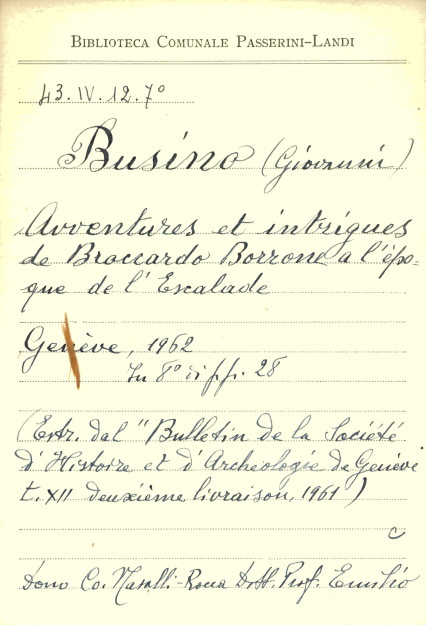 BIBLIOTECA COMUNALE PASSERINI-LANDI
43.IV.12.7°
Busino (Giovanni)
Avventures et intrigues
de Broccardo Borrone a l'épo-
que de l'Escalade
Genève, 1962
In 8° di pp. 28
(Estr. dal "Bulletin de la Société
d'Histoire et d'Archéologie de Genève
t. XII deuxième livraison, 1961)
C
Dono Co. Nasalli-Rocca Dott. Prof. Emilio